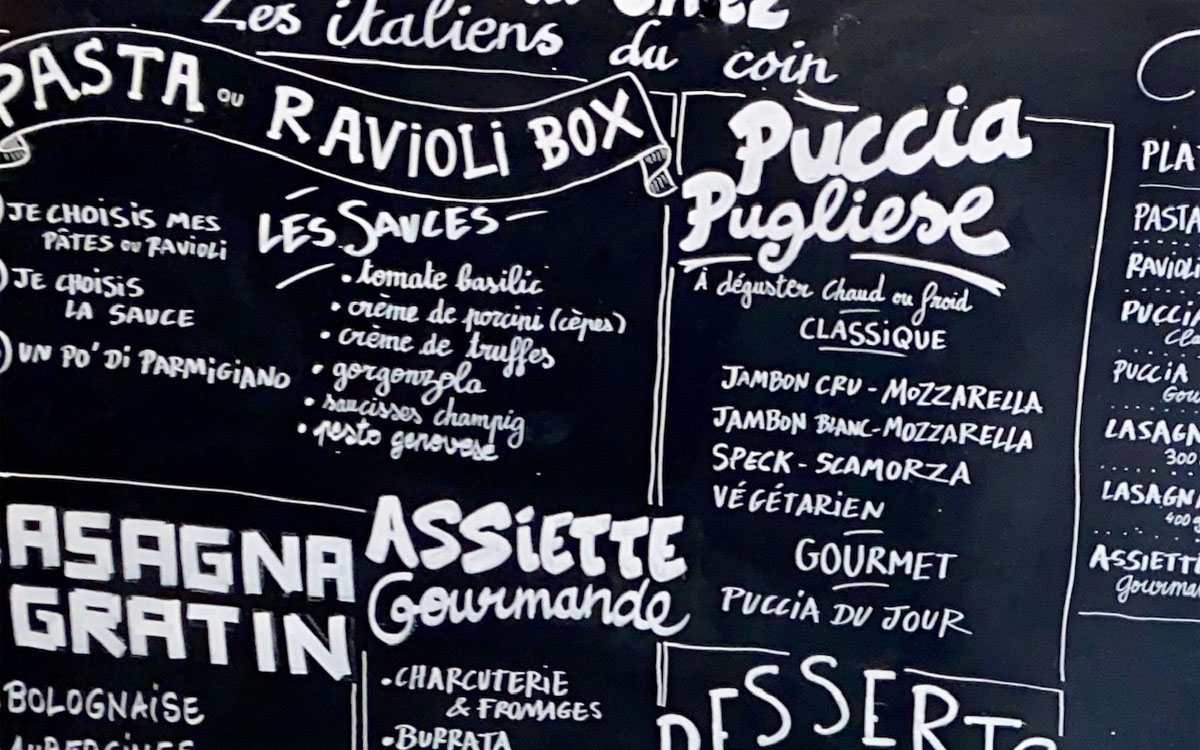 Les italiens du coin
PASTA OU RAVIOLI BOX
JE CHOISIS MES
PÂTES OU RAVIOLI
JE CHOISIS
LA SAUCE
UN PO' DI PARMIGIANO
LES SAUCES
• tomate basilic
• crème de porcini (cèpes)
• crème de truffes
• gorgonzola
• saucisses champig
• pesto genovese
LASAGNA
GRATIN
BOLOGNAISE
AUBERGINES
ASSIETTE
Gourmande
• CHARCUTERIE
& FROMAGES
• BURRATA
Puccia
Pugliese
À déguster chaud ou froid
CLASSIQUE
JAMBON CRU - MOZZARELLA
JAMBON BLANC - MOZZARELLA
SPECK - SCAMORZA
VÉGÉTARIEN
GOURMET
PUCCIA DU JOUR
DESSERTS
PLA
PASTA
RAVIOLI
PUCCIA
Cla
PUCCIA
Gou
LASAGN
300
LASAGN
400g
ASSIETTE
Gourma